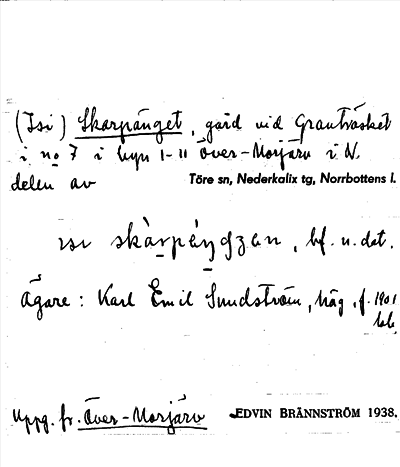 (Isi) Skarpänget, gård vid Granträsket
i no 7 i byn 1-11 Över-Morjärv i N.
delen av Töre sn, Nederkalix tg, Norrbottens l.
ısı skàrpéŋgzan, bf. u. dat.
Ägare: Karl Emil Sundström, häg, f. 1901
Uppg. fr. Över-Morjärv EDVIN BRÄNNSTRÖM 1938.